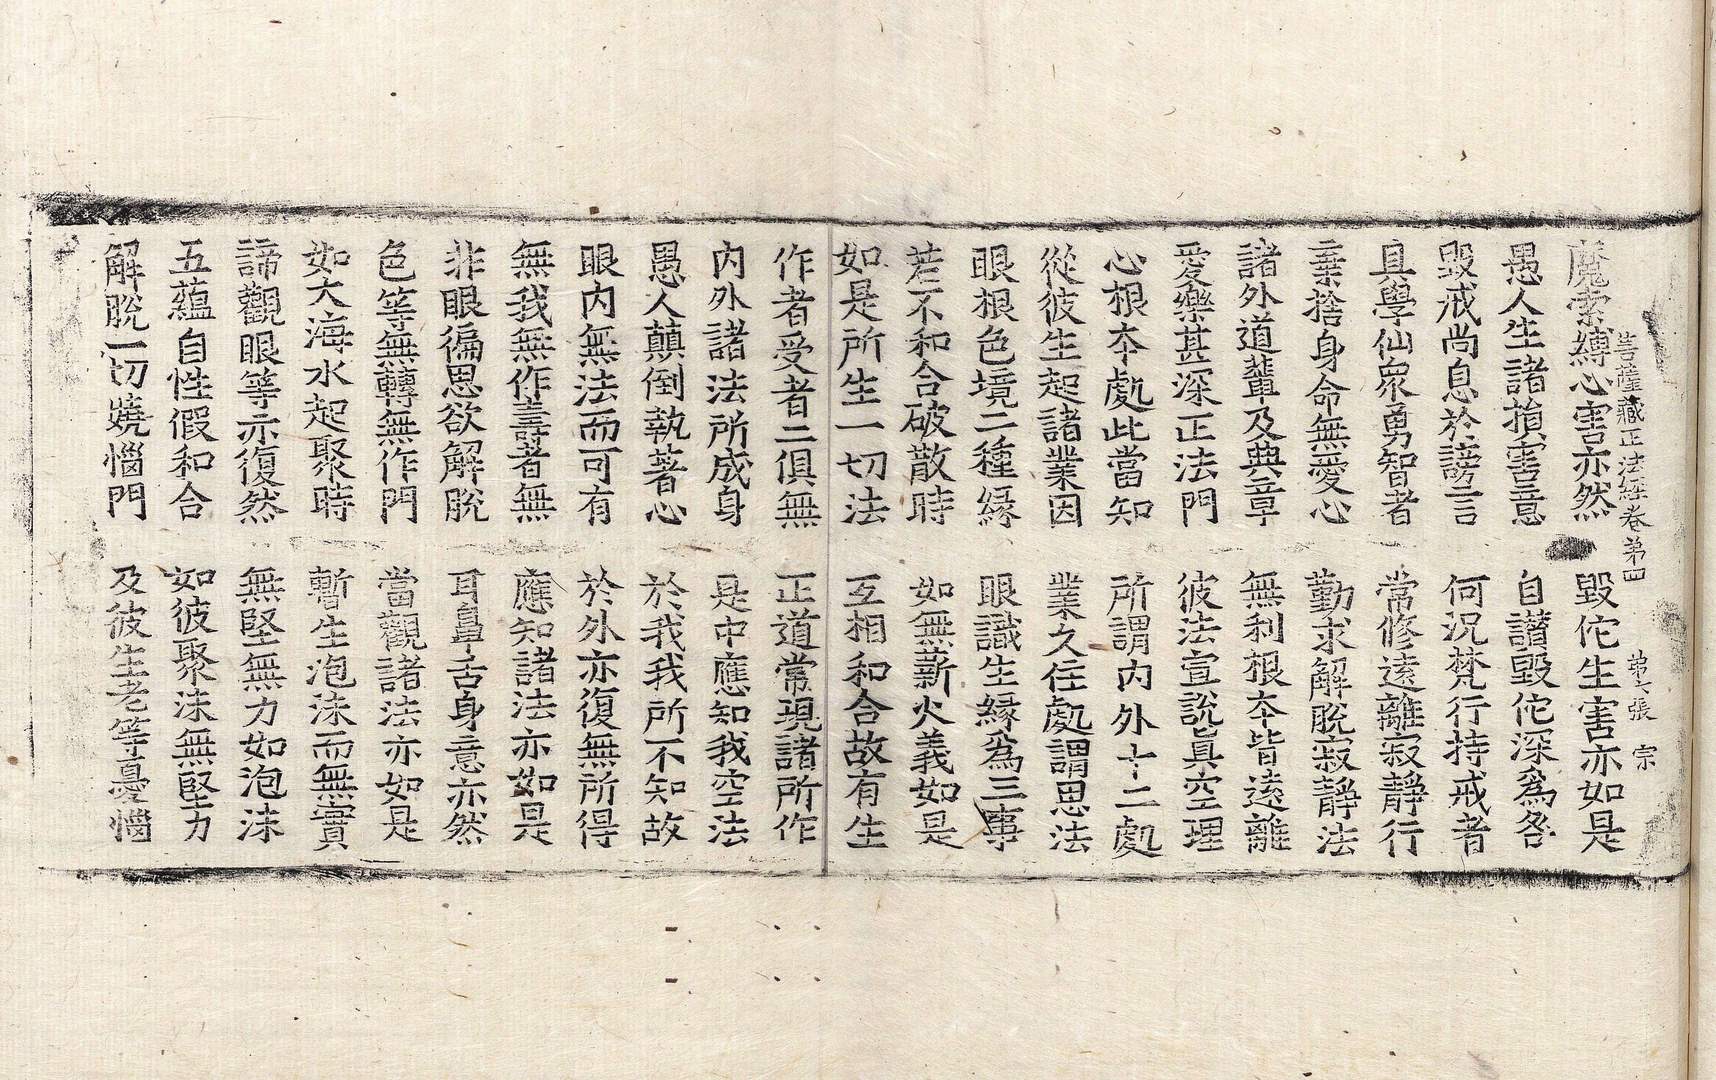 菩薩藏正法經卷第四 第七張 宗
魔索縛心害亦然 毀佗生害亦如是
愚人生諸損害意 自讃毀佗深爲咎
毀戒尚息於謗言 何況梵行持戒者
具學仙衆勇智者 常修遠離寂靜行
棄捨身命無愛心 勤求解脫寂靜法
諸外道輩及典章 無利根本皆遠離
愛樂甚深正法門 彼法宣說眞空理
心根本處此當知 所謂內外十二處
從彼生起諸業因 業久住處謂思法
眼根色境二種緣 眼識生緣爲三事
若不和合破散時 如無薪火義如是
如是所生一切法 互相和合故有生
作者受者二俱無 正道常現諸所作
內外諸法所成身 是中應知我空法
愚人顛倒執著心 於我我所不知故
眼內無法而可有 於外亦復無所得
無我無作壽者無 應知諸法亦如是
非眼徧思欲解脫 耳鼻舌身意亦然
色等無轉無作門 當觀諸法亦如是
如大海水起聚時 暫生泡沫而無實
諦觀眼等亦復然 無堅無力如泡沫
五蘊自性假和合 如彼聚沫無堅力
解脫一切嬈惱門 及彼生老等憂惱